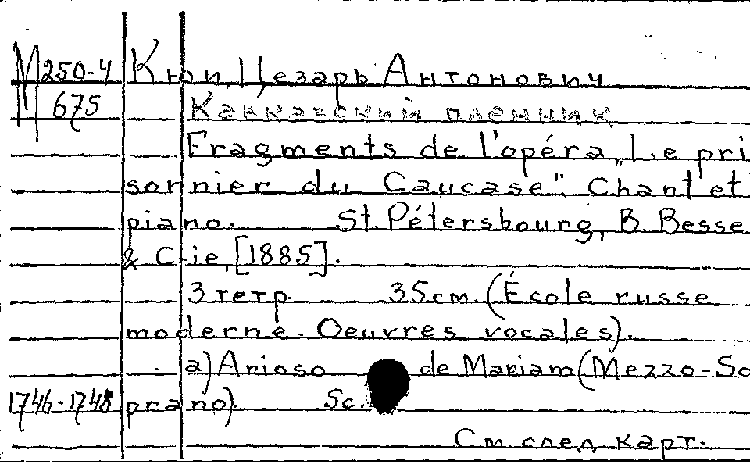 М 250-4 Кюи, Цезарь Антонович
675 Кавказский пленник
Fragments de l'opéra „Le pri
sonnier du Caucase". Chant et
piano. St. Pétersbourg, B. Besse
& Cie, [1885].
3 тетр. 35 cm. (École russe
moderne. Oeuvres vocales).
a) Arioso de Mariam (Mezzo-So
1746-1748 prano). Sc.
См. след. карт.